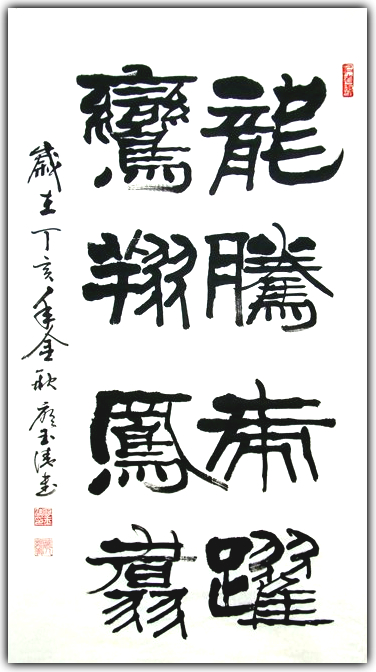 龍騰虎躍
鸞翔鳳翥
歲在丁亥年金秋玉書